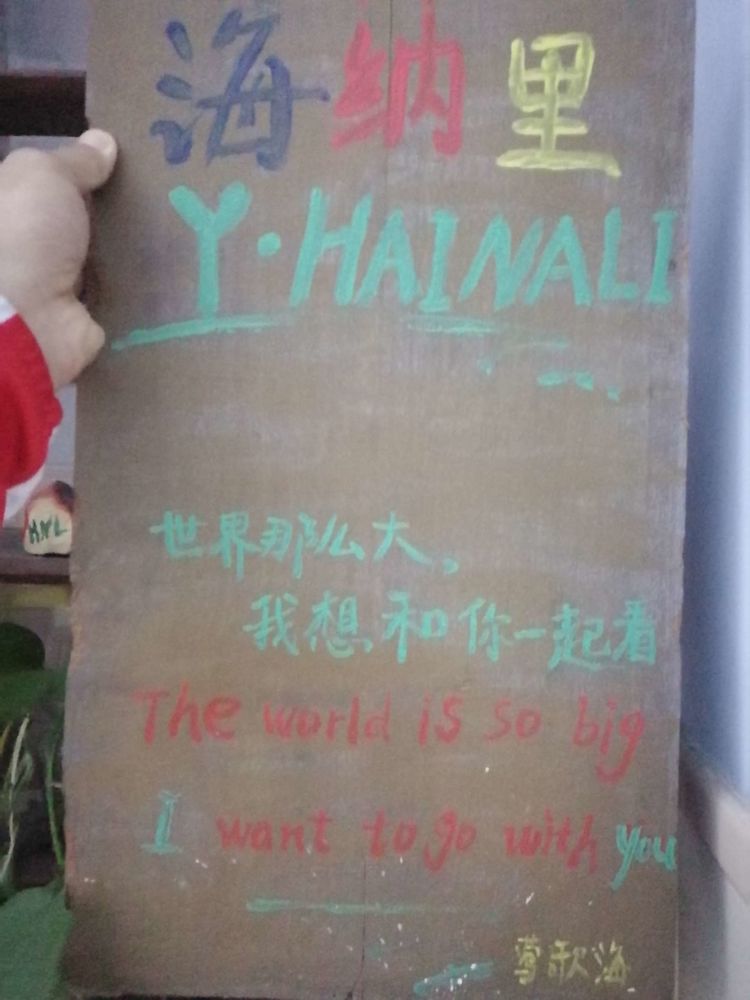 海纳里
Y·HAINALI
世界那么大，
我想和你一起看
The world is so big
I want to go with you
莺歌海
HNL